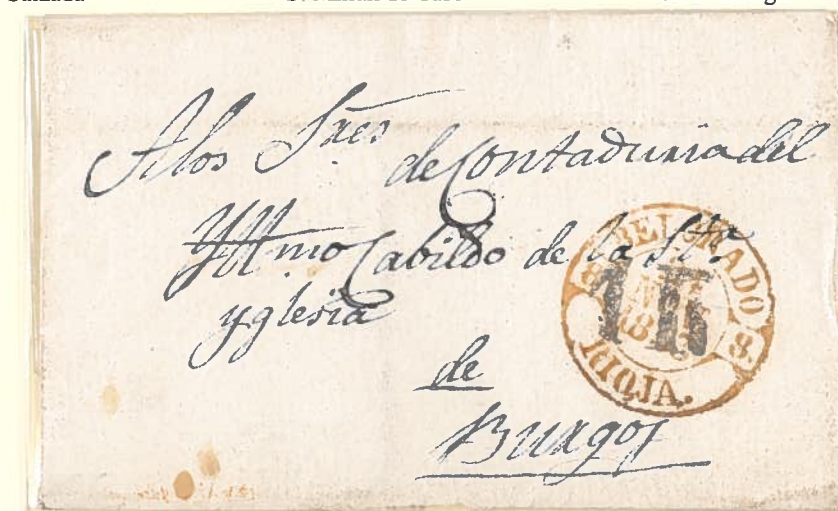 A los Sres de Contaduria del
Yltmo Cabildo de la Sta
yglesia
de
Burgos
BELORADO
8. 8.
NOV
18
1R
RIOJA.